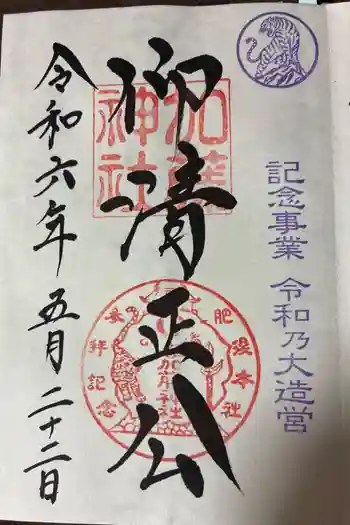 記念事業 令和乃大造営
仰清正公
加藤神社
拝記念
加藤神社
令和六年 五月 二十二日